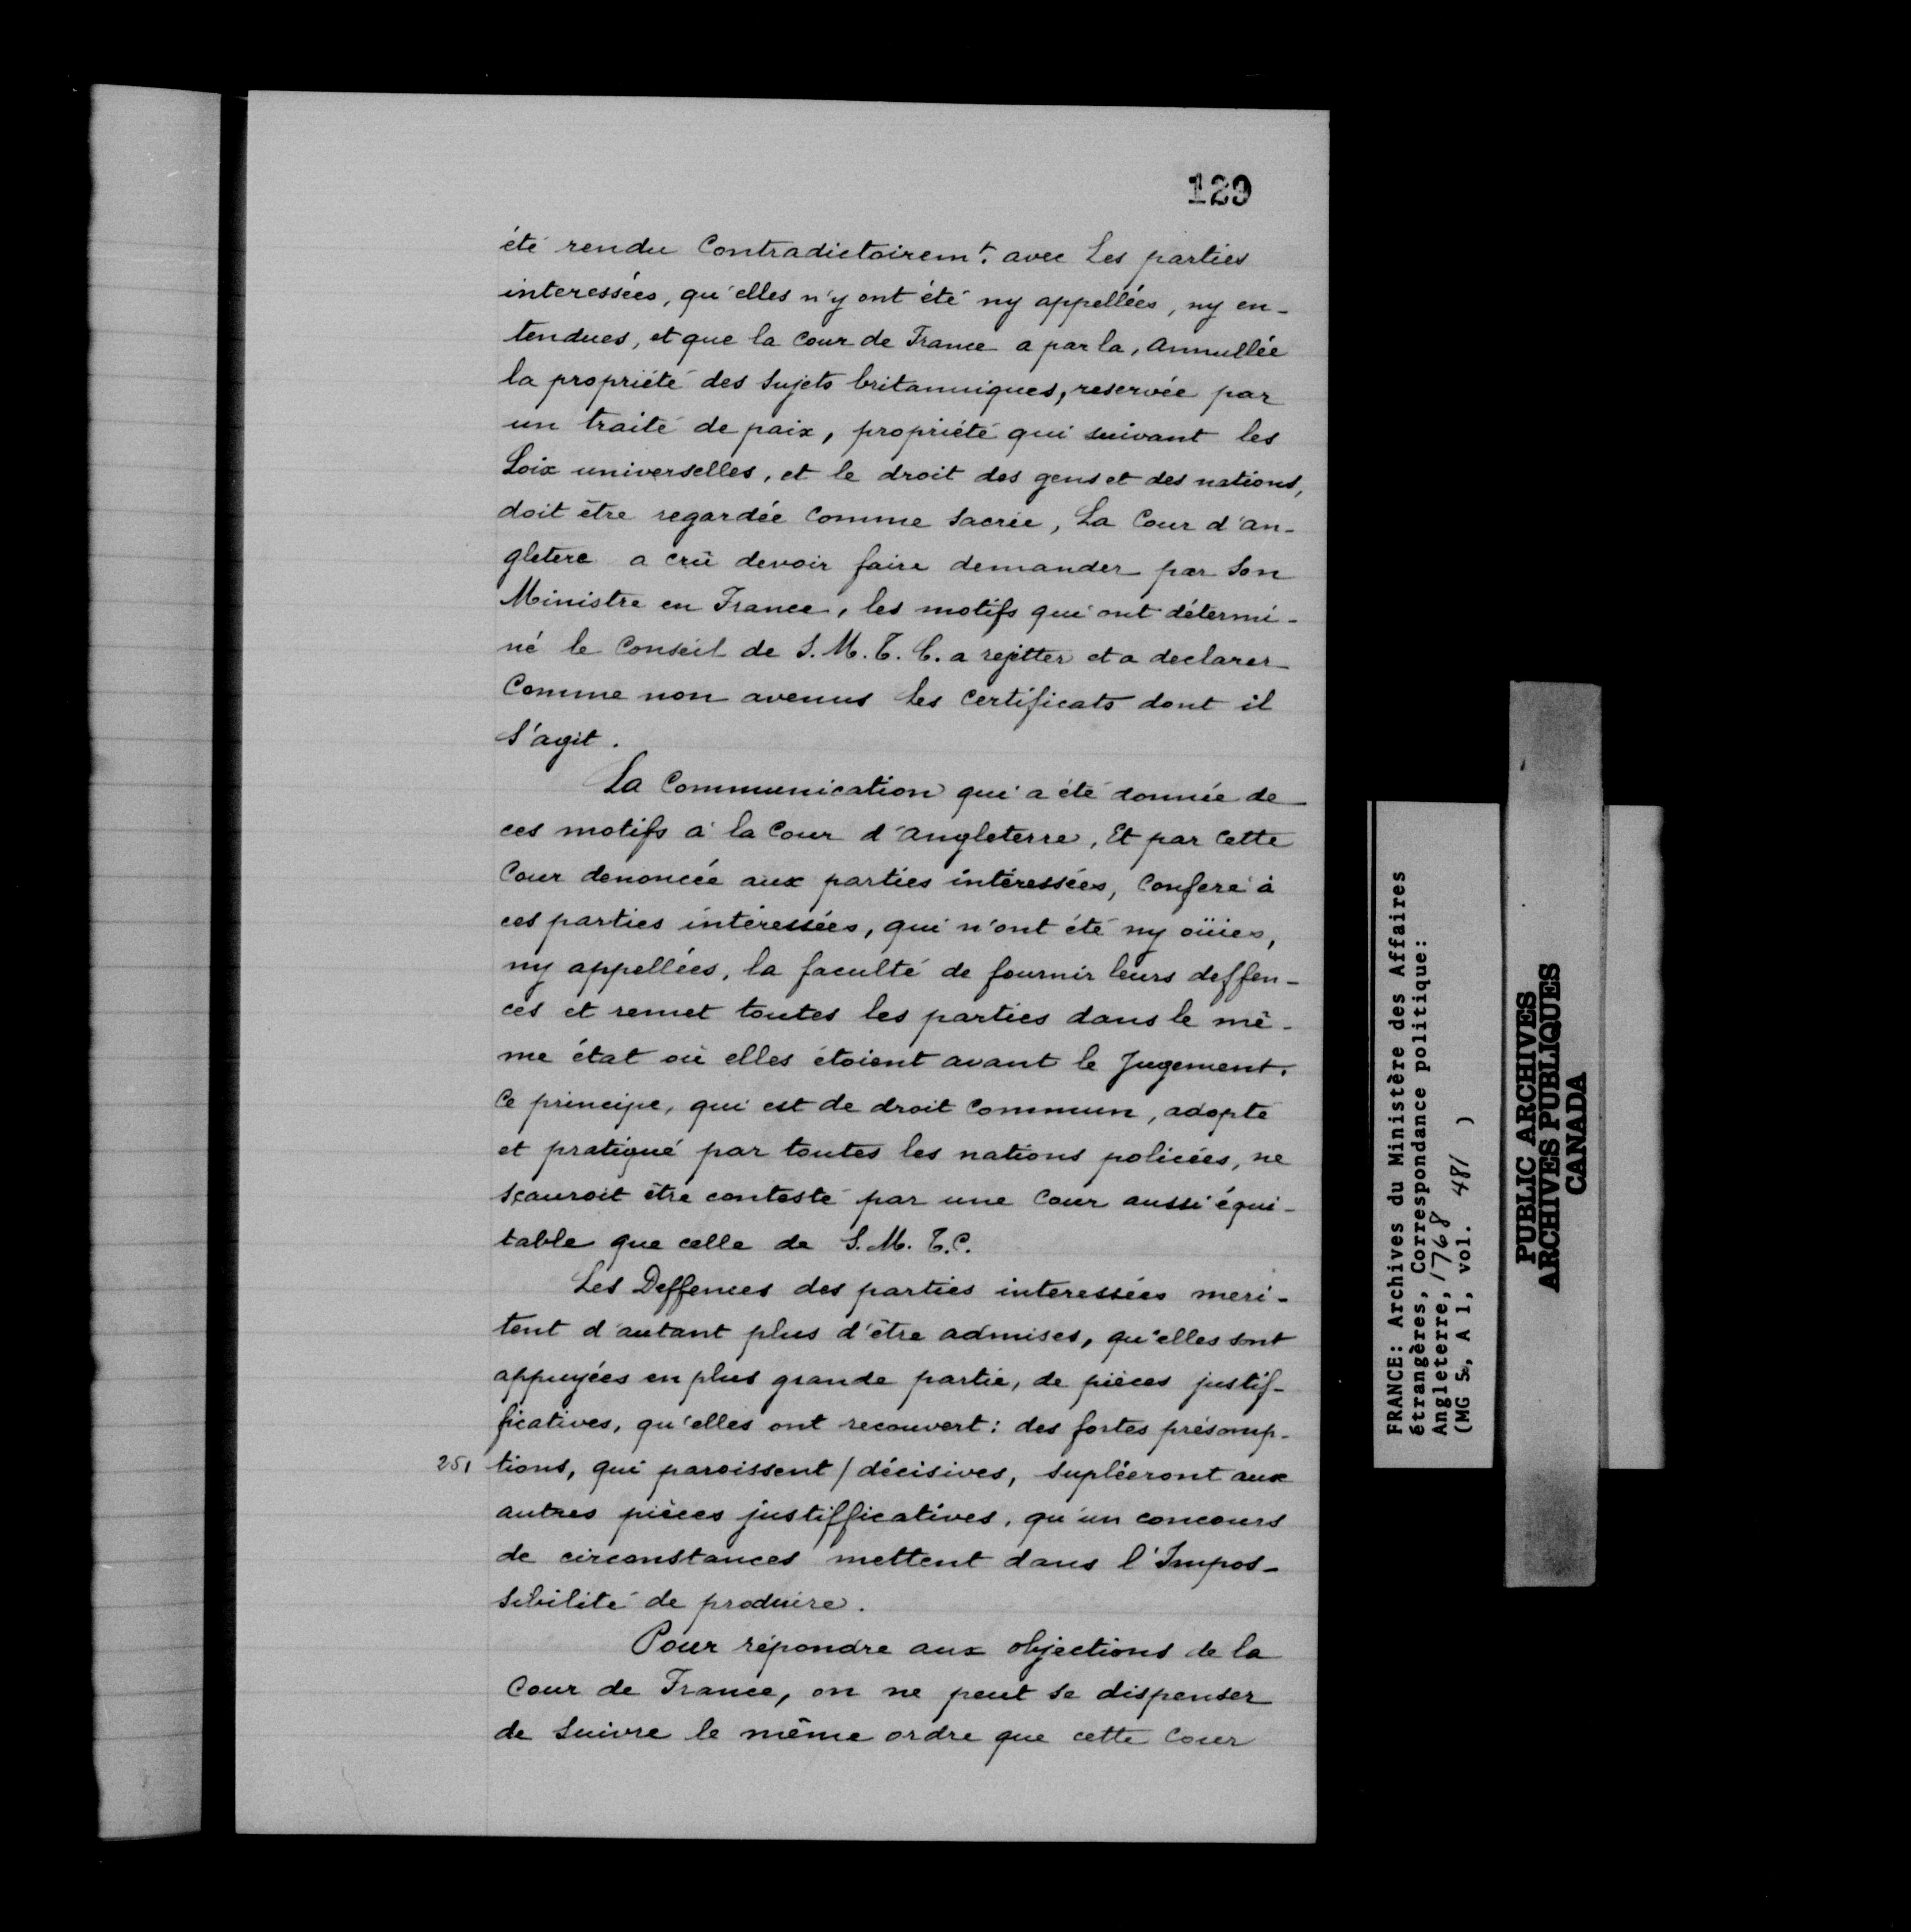 129
été rendu Contradictoirem.t avec Les parties
interessées, qu'elles n'y ont été ny appellées, ny en-
tendues, et que la Cour de France a par la, annullée
la propriété des Sujets britanniques, reservée par
un traité de paix, propriété qui suivant les
Loix universelles, et le droit des gens et des nations,
doit être regardée Comme Sacrée, La Cour d'an-
gletere a crû devoir faire demander par Son
Ministre en France, les motifs qui ont détermi-
né le Conseil de S. M. T. C. a rejetter et a declarer
Comme non avenus les Certificats dont il
S'agit.
La Communication qui a été donnée de
ces motifs à la Cour d'angleterre, Et par Cette
Cour denoncée aux parties intéressées, Confere à
ces parties intéressées, qui n'ont été ny oüies,
ny appellées, la faculté de fournir leurs deffen-
ces et remet toutes les parties dans le mê-
me état où elles étoient avant le Jugement.
Ce principe, qui est de droit Commun, adopté
et pratiqué par toutes les nations policées, ne
sçauroit être contesté par une Cour aussi équi-
table que celle de S. M. T. C.
Les Deffences des parties interessées meri-
tent d'autant plus d'être admises, qu'elles sont
appuyées en plus grande partie, de pièces justif-
ficatives, qu'elles ont recouvert: des fortes présomp-
251 tions, qui paroissent / décisives, supléeront aux
autres pièces justifficatives, qu'un concours
de circonstances mettent dans l'Impos-
sibilité de produire.
Pour répondre aux objections de la
Cour de France, on ne peut se dispenser
de Suivre le même ordre que cette Cour
FRANCE: Archives du Ministère des Affaires
étrangères, Correspondance politique:
Angleterre, 1768
(MG 5, A 1, vol. 481 )
PUBLIC ARCHIVES
ARCHIVES PUBLIQUES
CANADA